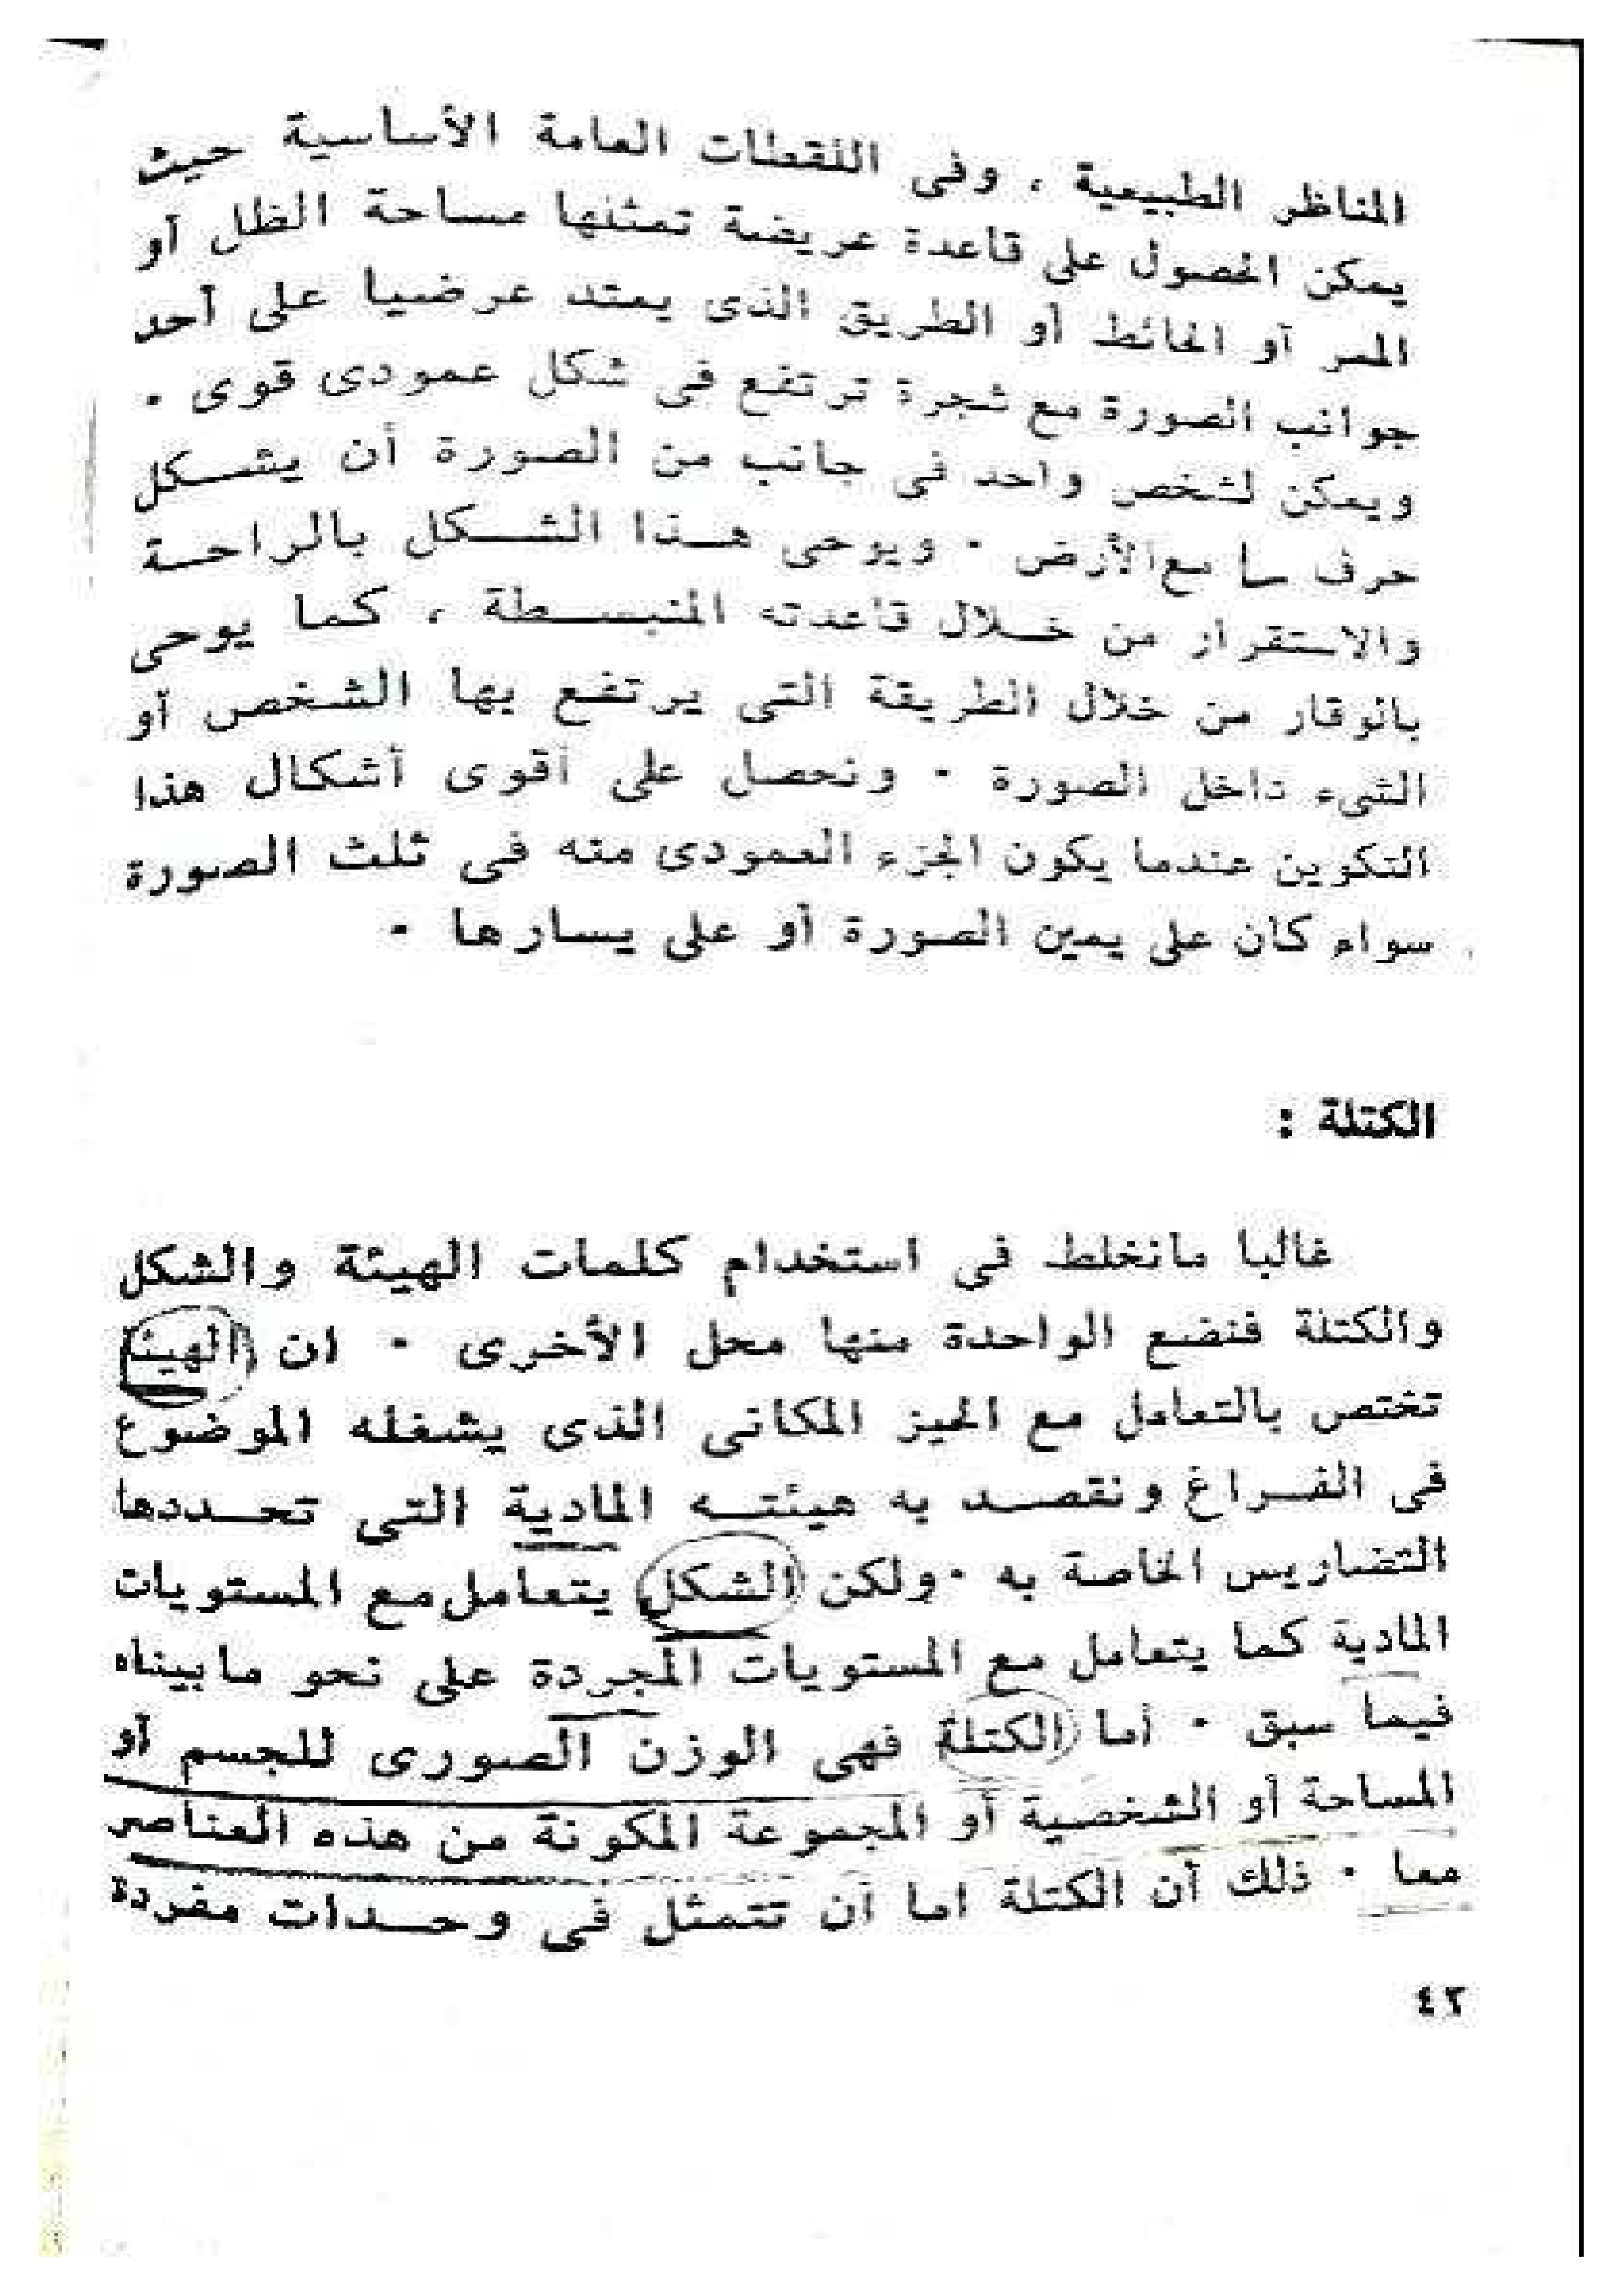 المناظر الطبيعية ، وفى اللقطات العامة الأساسية حيث
يمكن الحصول على قاعدة عريضة تمثلها مساحة الظل أو
الممر أو الحائط أو الطريق الذى يمتد عرضيا على أحد
جوانب الصورة مع شجرة ترتفع فى شكل عمودى قوى ٠
ويمكن لشخص واحد فى جانب من الصورة أن يشكل
حرف مع الأرض ٠ ويوحى هذا الشكل بالراحة
والاستقرار من خلال قاعدته المنبسطة ، كما يوحى
بالوقار من خلال الطريقة التى يرتفع بها الشخص أو
الشىء داخل الصورة ٠ ونحصل على أقوى أشكال هذا
التكوين عندما يكون الجزء العمودى منه فى ثلث الصورة
سواء كان على يمين الصورة أو على يسارها ٠
الكتلة :
غالبا مانخلط فى استخدام كلمات الهيئة والشكل
والكتلة فنضع الواحدة منها محل الأخرى ٠ ان الهيئة
تختص بالتعامل مع الحيز المكانى الذى يشغله الموضوع
فى الفراغ ونقصد به هيئته المادية التى تحددها
التضاريس الخاصة به ٠ ولكن الشكل يتعامل مع المستويات
المادية كما يتعامل مع المستويات المجردة على نحو مابيناه
فيما سبق ٠ أما الكتلة فهى الوزن الصورى للجسم أو
المساحة أو الشخصية أو المجموعة المكونة من هذه العناصر
معا ٠ ذلك أن الكتلة اما أن تتمثل فى وحدات مفردة
٤٢